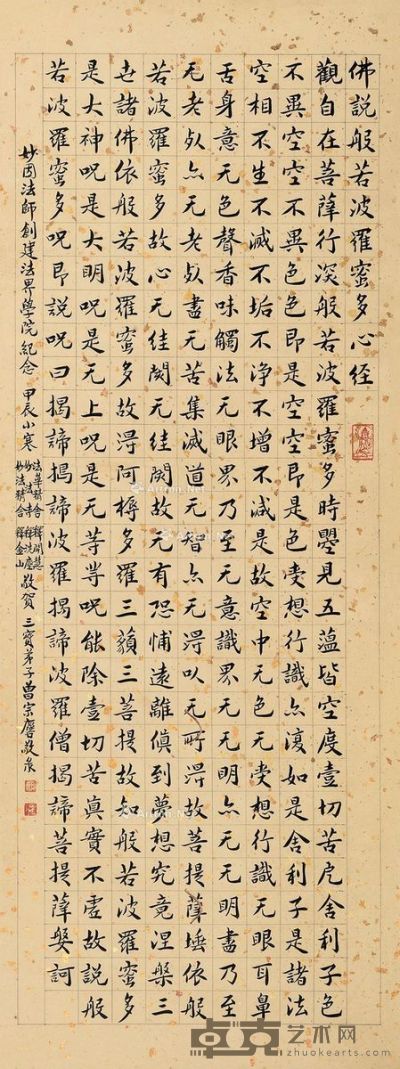 佛說般若波羅蜜多心經
觀自在菩薩行深般若波羅蜜多時曌見五蕴皆空度壹切苦戹舍利子色
不異空空不異色色即是空空即是色受想行識亦復如是舍利子是諸法
空相不生不滅不垢不淨不增不減是故空中无色无受想行識无眼耳鼻
舌身意无色聲香味觸法无眼界乃至无意識界无无明亦无无明盡乃至
无老死亦无老死盡无苦集滅道无智亦无得以无所得故菩提薩埵依般
若波羅蜜多故心无絓閡无絓閡故无有恐怖遠離傎到夢想究竟涅槃三
世諸佛依般若波羅蜜多故得阿耨多羅三藐三菩提故知般若波羅蜜多
是大神呪是大明呪是无上呪是无等等呪能除壹切苦真實不虛故說般
若波羅蜜多呪即說呪曰揭諦揭諦波羅揭諦波羅僧揭諦菩提薩婆訶
妙因法師創建法界學院紀念 甲辰小寒
法華精舍 釋開慧
妙法寺 釋洗塵
妙法精舍 釋金山
敬賀 三寶弟子曾宗謄敬泉
卓克艺术网
zhuokearts.com